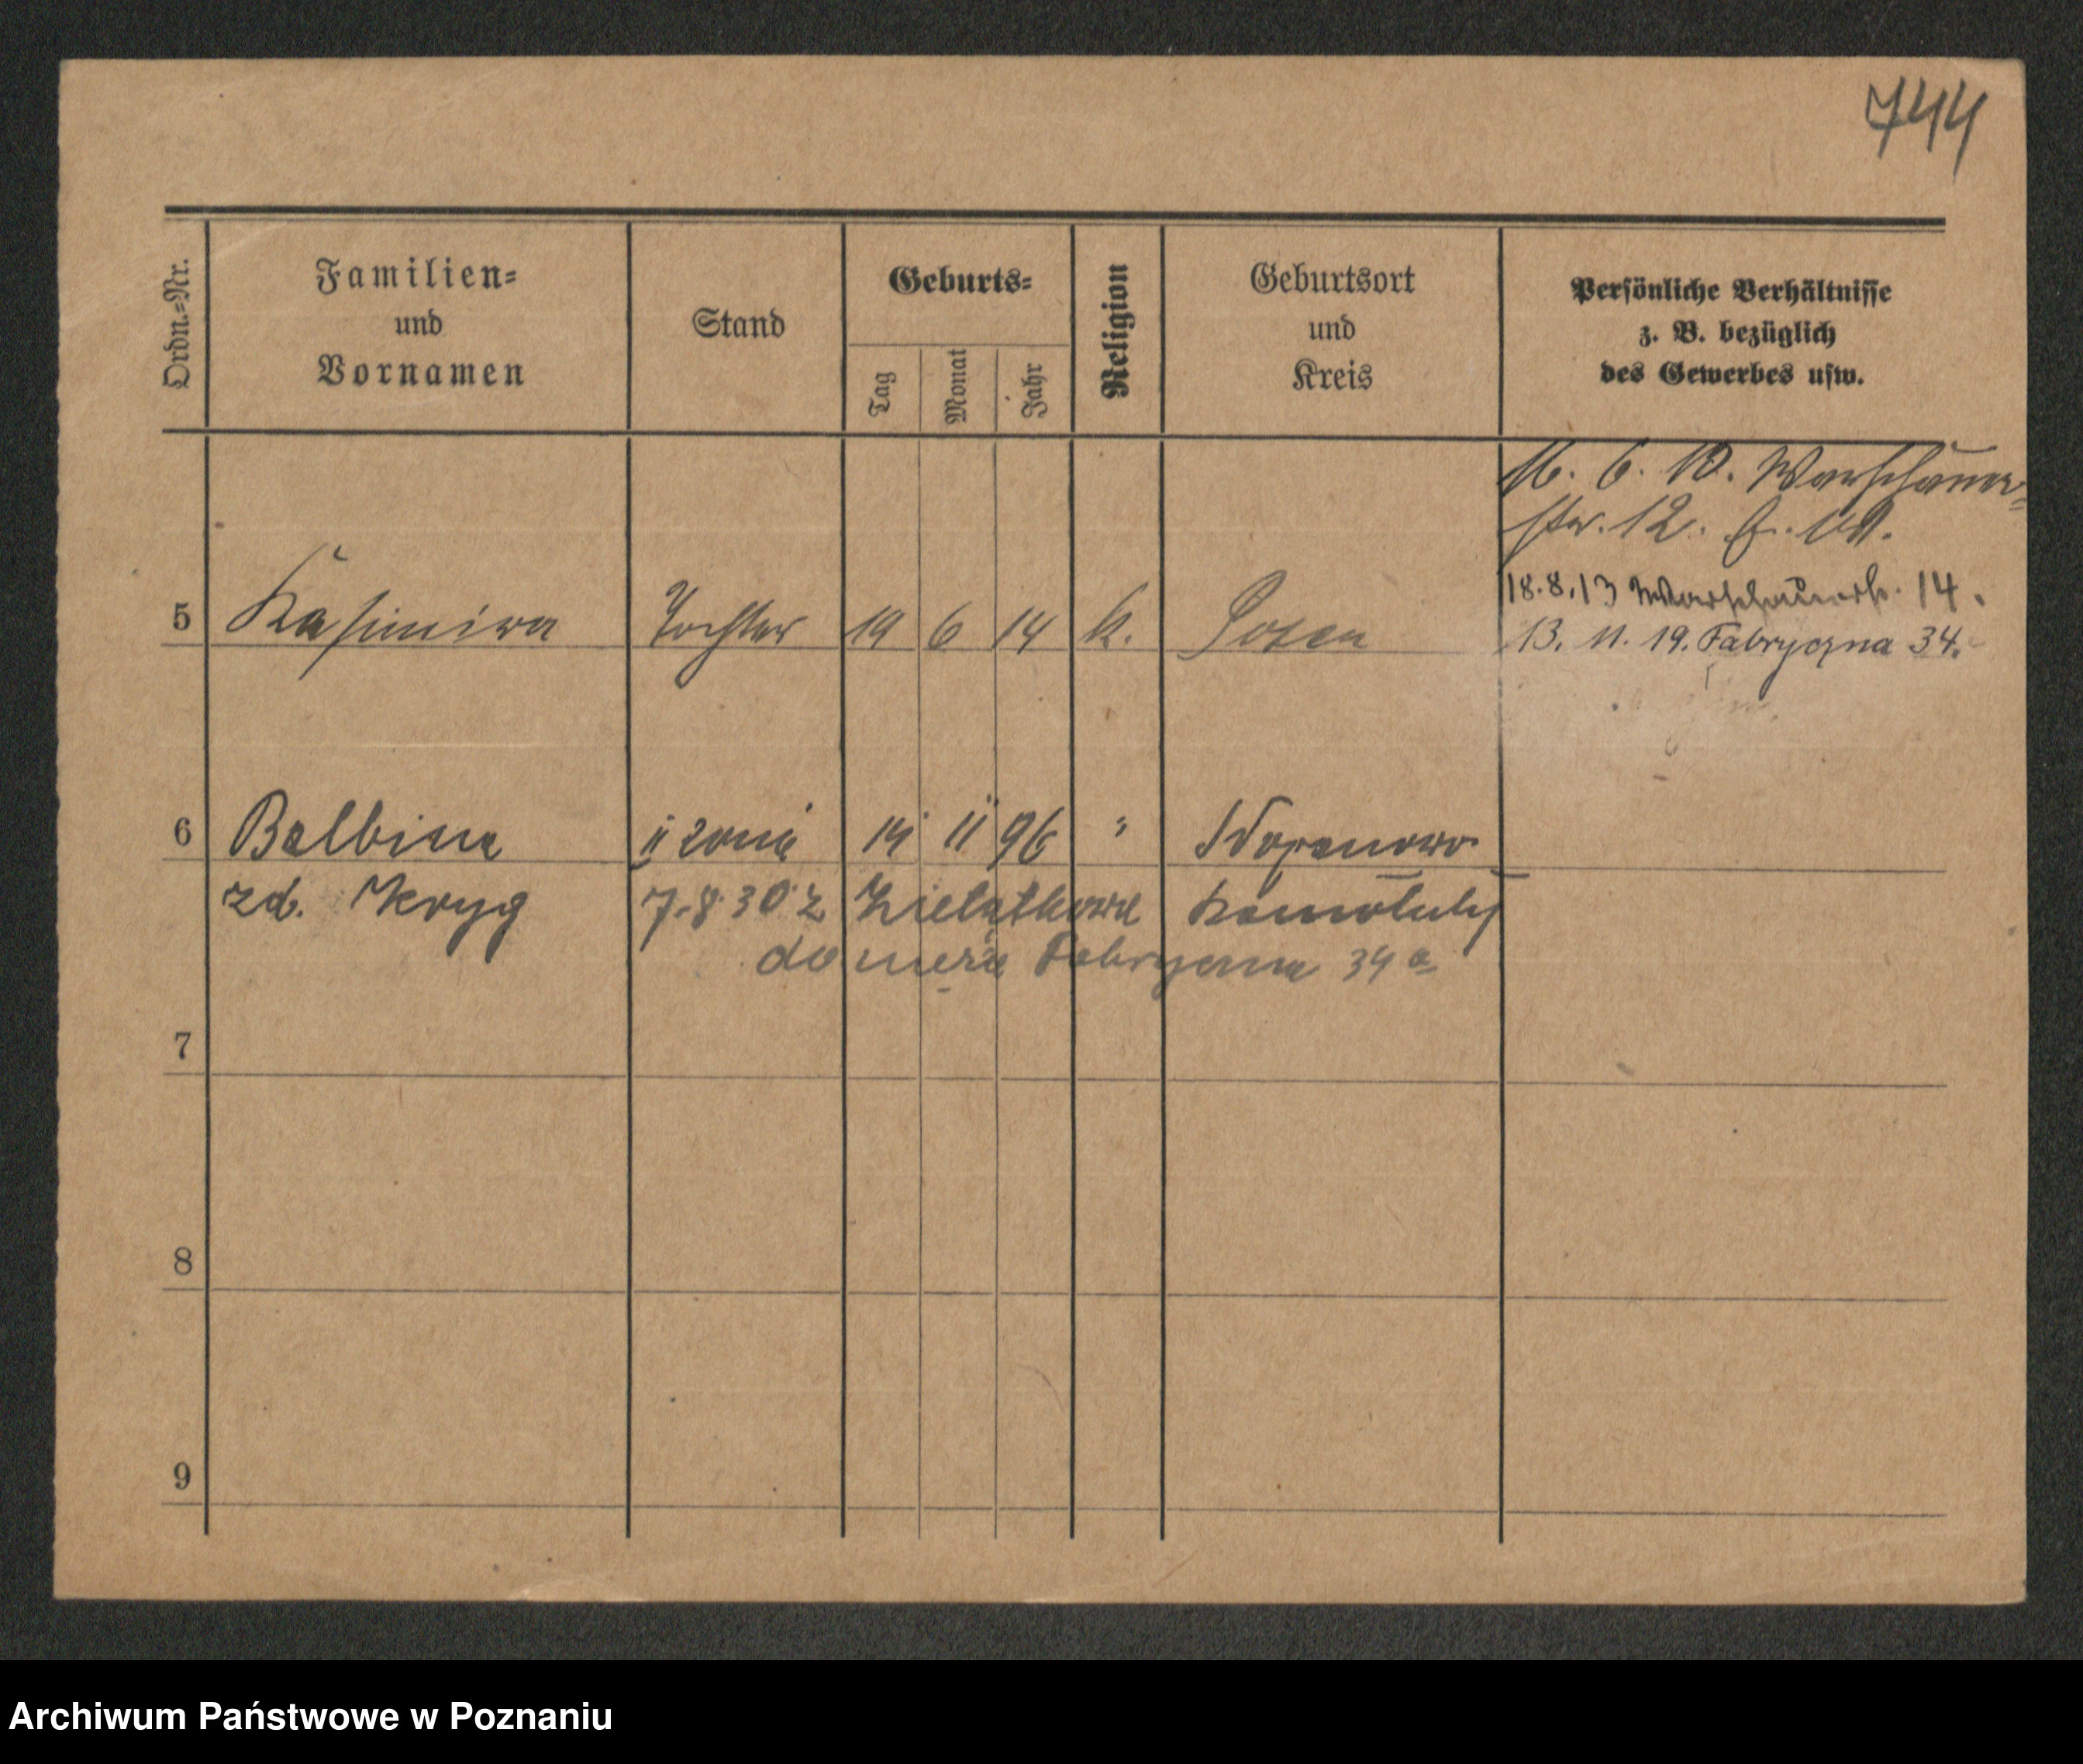 744
Ordn.=Nr.
Familien=
und
Vornamen
Stand
Geburts=
Tag
Monat
Jahr
Religion
Geburtsort
und
Kreis
Persönliche Verhältnisse
z. B. bezüglich
des Gewerbes usw.
16. 6. 10. Warschauer=
str. 12.
18.8.13 Warschauerstr. 14.
5 Kasimira Tochter 19 6 14 k. Posen 13. 11. 19. Fabryczna 34.
6 Balbina II żona 14 11 96 "
zd. Kryg 7.8.30 z
do męża Fabryczna 34a
7
8
9
Archiwum Państwowe w Poznaniu